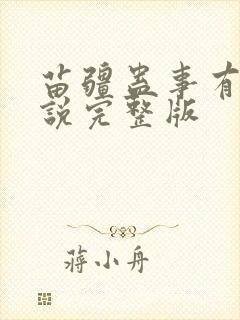 苗疆蛊事有
说完整版
蒋小舟